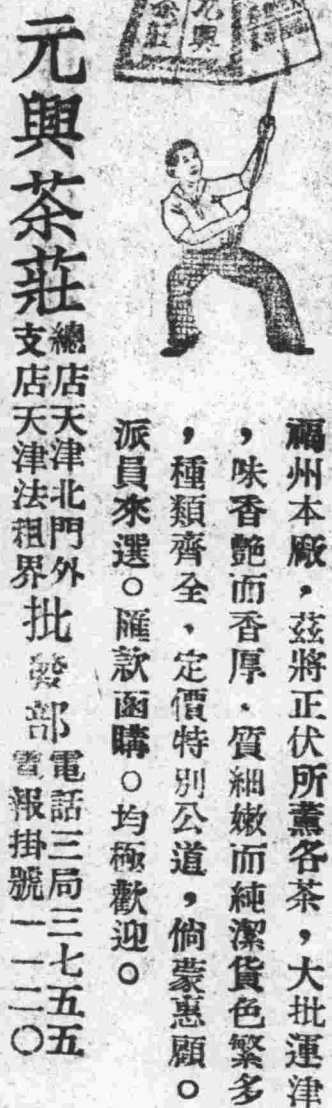 元興
茶莊
福州本廠，茲將正伏所薰各茶，大批運津
，味香艷而香厚．質細嫩而純潔貨色繁多
，種類齊全、定價特別公道，倘蒙惠顧。
派員來選。匯款函購。均極歡迎。
元興茶莊
總店天津北門外
支店天津法租界
批發部
電話三局三七五五
電報掛號一一二〇